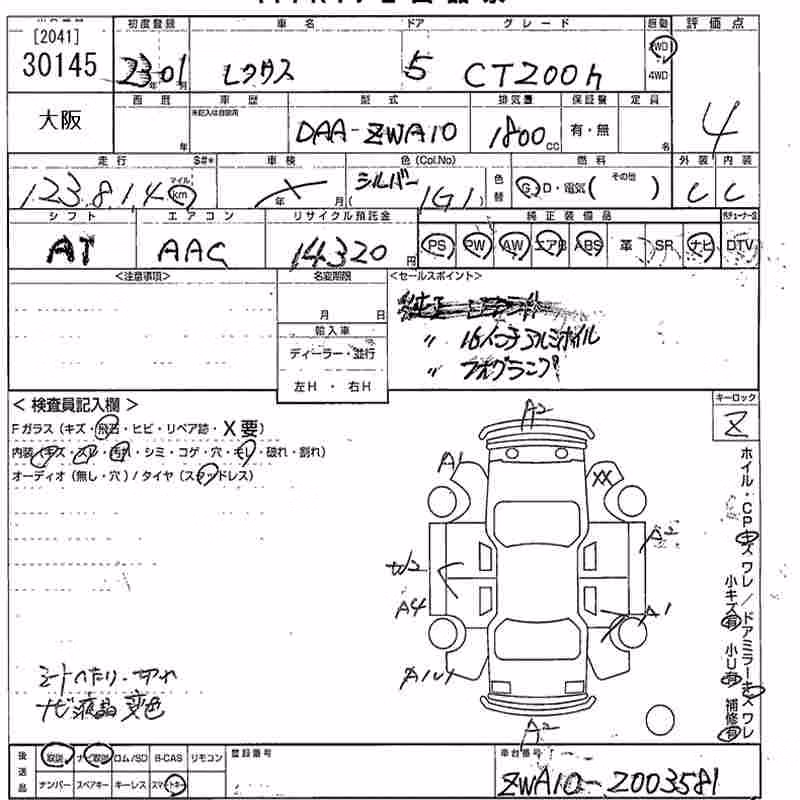 [2041]
30145
初度登録
車名
ドア
グレード
駆動
評価点
23年01月
レクサス
5
CT200h
2WD
4WD
4
大阪
西暦
車歴
型式
排気量
保証書
定員
年
未記入は自家用
DAA-ZWA10
1800cc
有・無
名
走行
S#*
車検
色(Col.No)
燃料
外装
内装
123,814
マイル
km
年
月
シルバー
(1G1)
色替
G・D・電気(
その他
)
C
C
シフト
エアコン
リサイクル預託金
純正装備品
AT
AAC
14320円
PS
PW
AW
エアB
ABS
革
SR
ナビ
DTV
<注意事項>
名変期限
月
日
輸入車
ディーラー・並行
左H・右H
<セールスポイント>
〃 16インチアルミホイル
〃 フォグランプ
<検査員記入欄>
Fガラス(キズ・飛石・ヒビ・リペア跡・X要)
内装(キズ・スレ・汚れ・シミ・コゲ・穴・キレ・破れ・割れ)
オーディオ(無し・穴)/タイヤ(スタッドレス)
キーロック
Z
A2
A1
XX
A2
W2
A4
A1
A2
ホイル・CPキズワレ/ドアミラーキズワレ
小キズ有 小U有 補修有
シートへたり・切れ
ナビ液晶変色
後送品
取説
ナビ取説
ロム/SD
B-CAS
リモコン
ナンバー
スペアキー
キーレス
スマートキー
登録番号
車台番号
ZWA10-2003581